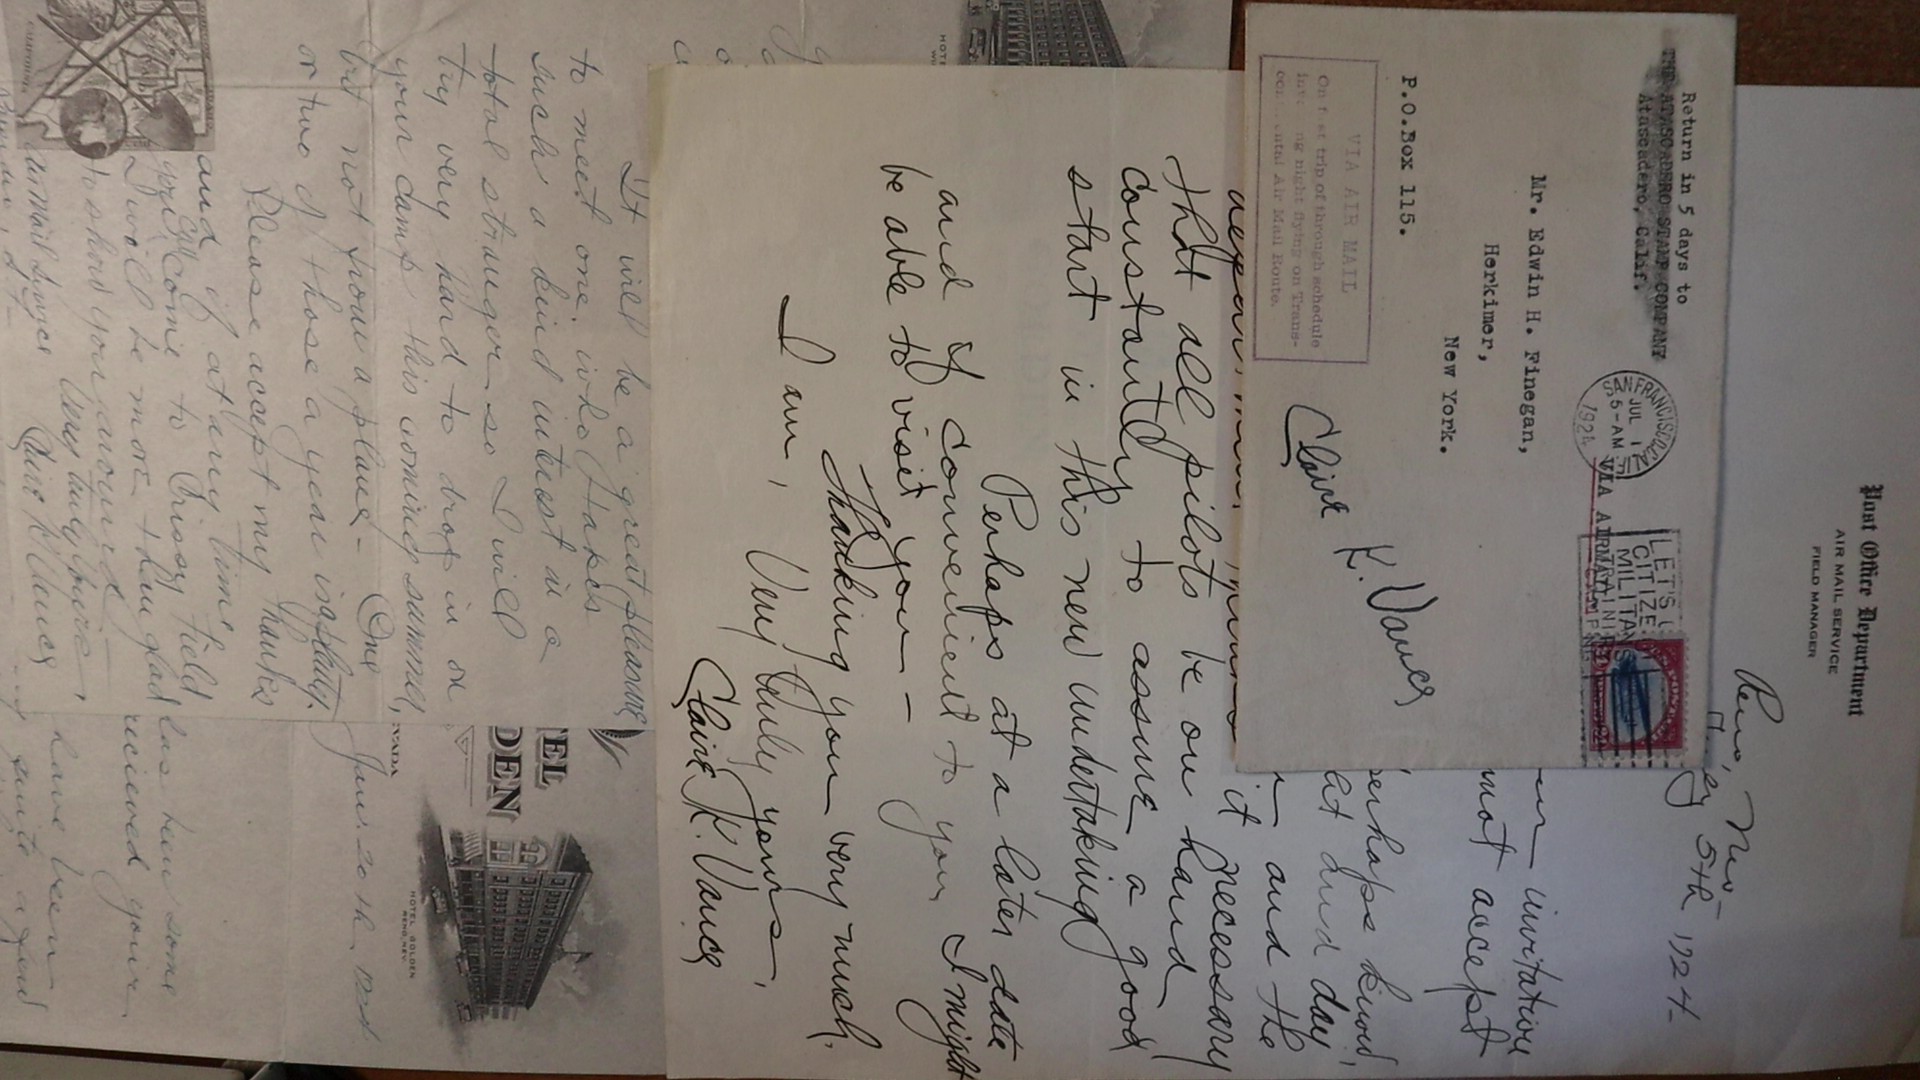 Post Office Department
AIR MAIL SERVICE
FIELD MANAGER
Reno, Nev-
5th 1924-
invitation
not accept
perhaps kind,
day
and the
it necessary
that all pilots be on hand
constantly to assure a good
start in this new undertaking
Perhaps at a later date
and if convenient to you, I might
be able to visit you -
Thanking you very much,
I am, Very truly yours,
Claire K. Vance
Return in 5 days to
THE ATASCADERO STAMP COMPANY
Atascadero, Calif.
SAN FRANCISCO, CAL
JUL 1
5-AM
1924
VIA AIRMAIL
LET'S
CITIZE
MILITA
CAMP
Mr. Edwin H. Finegan,
Herkimer,
New York.
P.O.Box 115.
VIA AIR MAIL
On f st trip of through schedule
invo ng night flying on Trans-
con ntal Air Mail Route.
Claire K. Vance
It will be a great pleasure
to meet one, who takes
such a kind interest in a
total stranger so I will
try very hard to drop in on
your camp this coming summer,
but not from a plane - One
or two of those a year is plenty.
Please accept my thanks
and if at any time
you come to Crissy Field
I will be more than glad
to show you around -
Very truly yours,
Claire K Vance
airmail service
HOTEL GOLDEN
RENO, NEV.
TEL
DEN
VADA
Jan. 20th.
has been some
recieved your
have been
quite a
HOTE